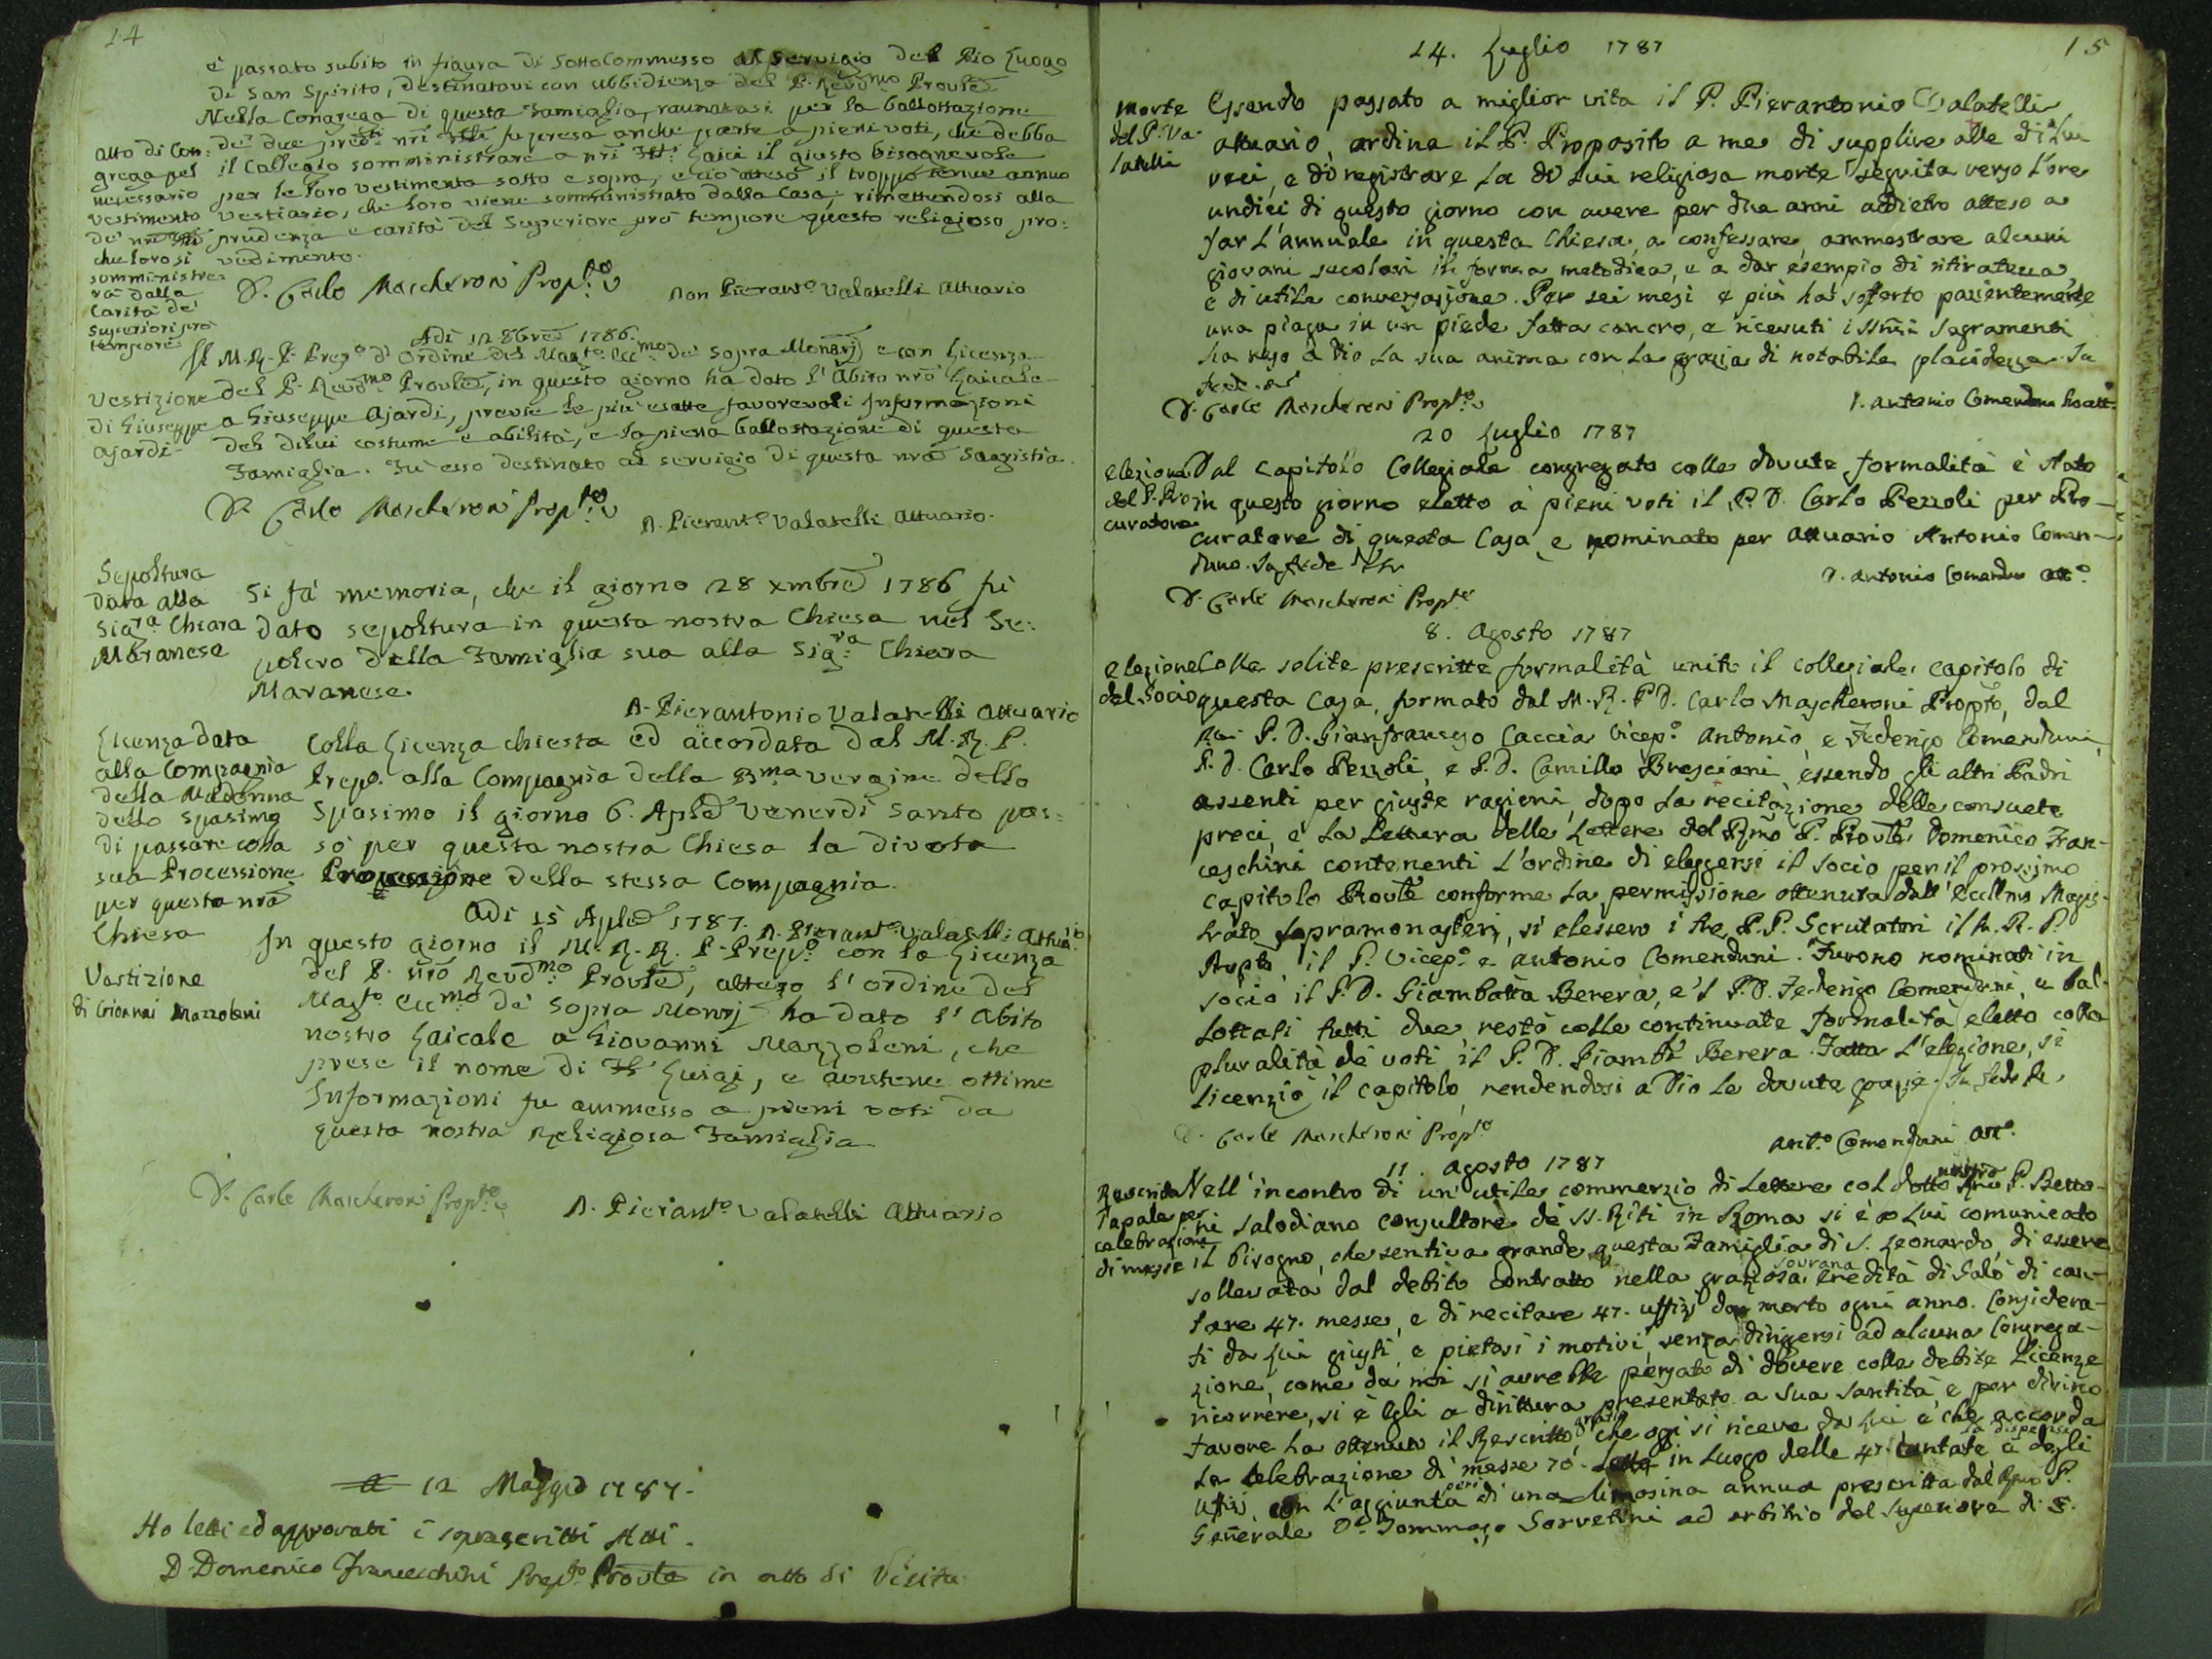 14
è passato subito in figura di Sottocommesso al servigio del Pio Luogo
di San Spirito, destinatovi con ubbidienza del P. Revd.mo Provle
Nella Congrega di questa Famiglia, raunatasi per la ballottazione
de' due pred.ti nri fu presa anche parte a pieni voti, che debba
il Collegio somministrare a nri Laici il giusto bisognevole
per le loro vestimenta sotto e sopra, e ciò atteso il troppo tenue annuo
vestiario, che loro viene somministrato dalla Casa; rimettendosi alla
prudenza e carità del Superiore prò tempore questo religioso pro:
vedimento.
Atto di Con:
grega pel
necessario
vestimento
de' nri
che loro si
somministre
rà dalla
Carità de'
Superiori prò
tempore
D. Carlo Mascheroni Prop.to
Don Pierant.o Valatelli Attuario
Adì 12 8bre 1786.
Il M. R. P. Prep.o d'Ordine del Mag.to Ecc.mo de' sopra Monrj e con Licenza
del P. Revd.mo Provle, in questo giorno ha dato l'Abito nro Laicale
a Giuseppe Ajardi, previe le più esatte favorevoli Informazioni
del dilui costume e abilità, e la piena ballottazione di questa
Famiglia. Fù esso destinato al servigio di questa nra Sagristia.
Vestizione
di Giuseppe
Ajardi
D. Carlo Mascheroni Prop.to
D. Pierant.o Valatelli Attuario.
Sepoltura
data alla
Sig.ra Chiara
Maranese
Si fà memoria, che il giorno 28 Xmbre 1786 fù
dato sepoltura in questa nostra Chiesa nel Se:
polcro della Famiglia sua alla Sig.ra Chiara
Maranese.
D. Pierantonio Valatelli Attuario
Licenza data
alla Compagnia
della Madonna
dello Spasimo
di passare colla
sua Processione
per questa nra
Chiesa
Colla Licenza chiesta ed accordata dal M. R. P.
Prep.o alla Compagnia della B.ma Vergine dello
Spasimo il giorno 6. Aple Venerdì Santo pas:
sò per questa nostra Chiesa la divota
Processione della stessa Compagnia.
D. Pierant.o Valatelli Attuario
Adì 15 Aple 1787.
In questo giorno il M. R. R. P. Prep.o con la Licenza
del P. nro Revd.mo Provle, atteso l'ordine del
Mag.to Ecc.mo de' sopra Monrj ha dato l'Abito
nostro Laicale a Giovanni Mazzoleni, che
prese il nome di Luigi, e avutene ottime
Informazioni fu ammesso a pieni voti da
questa nostra Religiosa Famiglia
Vestizione
di Giovanni Mazzoleni
D. Carlo Mascheroni Prop.to
D. Pierant.o Valatelli Attuario
12 Maggio 1787.
Ho letti ed approvati i soprascritti Atti.
D. Domenico Franceschini Prep.to Provle in atto di Visita
15
14. Luglio 1787
Morte
del P. Va-
latelli
Essendo passato a miglior vita il P. Pierantonio Valatelli
attuario, ordina il P. Proposito a me di supplire alle di lui
veci, e di registrare la di lui religiosa morte seguita verso l'ore
undici di questo giorno con avere per due anni addietro atteso a
far l'annuale in questa Chiesa, a confessare, ammestrare alcuni
giovani secolari in forma metodica, e a dar esempio di ritiratezza,
e di utile conversazione. Per sei mesi e più hà soferto pazientemente
una piaga in un piede fatta cancro, e ricevuti i SSmi Sagramenti
ha reso a Dio la sua anima con la grazia di notabile placidezza. In
fede
D. Carlo Mascheroni Prop.to
D. Antonio Comenduni
20 Luglio 1787
elezione
del P. Pro
curatore
Dal Capitolo Collegiale congregato colle dovute formalità è stato
in questo giorno eletto à pieni voti il P. D. Carlo Pezzoli per Pro-
curatore di questa Casa, e nominato per attuario Antonio Comen-
duno. In fede
D. Antonio Comenduni att.o
D. Carlo Mascheroni Prop.to
8. Agosto 1787
elezione
del Socio
Colle solite prescritte formalità unito il collegiale capitolo di
questa Casa, formato dal M. R. P. D. Carlo Mascheroni Propto, dal
P. D. Gianfransco Caccia Vicep.o Antonio, e Federigo Comenduni,
P. D. Carlo Pezzoli, e P. D. Camillo Bresciani, essendo gli altri Padri
assenti per giuste ragioni, dopo la recitazione delle consuete
preci, e la Lettura delle Lettere del Rmo P. Provle Domenico Fran-
ceschini contenenti l'ordine di eleggersi il Socio per il prossimo
capitolo Provle conforme la permissione ottenuta dall'Eccllmo Magis-
trato sopramonasterj, si elessero i tre P.P. Scrutatori il M. R. P.
Propto, il P. Vicep.o e Antonio Comenduni. Furono nominati in
socio il P. D. Giambatta Berera, e 'l P. D. Federigo Comenduni, e bal-
lottati tutti due restò colle continuate formalità eletto colla
pluralità de' voti il P. D. Giambta Berera. Fatta l'elezione, si
licenziò il capitolo, rendendosi a Dio le dovute grazie. In fede
D. Carlo Mascheroni Prop.to
Ant.o Comenduni att.o
11. Agosto 1787
Rescritto
Papale per
celebrazione
di messe
Nell'incontro di un'utile commerzio di Lettere col dotto nostro P. Betto-
ni Salodiano consultore de' SS. Riti in Roma si è a Lui comunicato
il bisogno, che sentiva grande questa Famiglia di S. Leonardo, di essere
sollevata dal debito contratto nella graziosa sovrana Eredità di Salò di can-
tare 47. messe, e di recitare 47. uffizj da morto ogni anno. Considera-
ti da Lui giusti, e pietosi i motivi, senza dirigersi ad alcuna Congrega-
zione, come da noi si avrebbe pensato di dovere colle debite Licenze
ricorrere, si è Egli a dirittura presentato a Sua Santità e per divino
favore ha ottenuto il Rescritto gratis, che oggi si riceve da Lui e che accorda
la Celebrazione di messe 70. in luogo delle 47. cantate e la dispensa degli
Uffizj, con l'aggiunta di una limosina annua prescritta dal Rmo P.
Generale D. Tommaso Sorvettini ad arbitrio del Superiore di S.